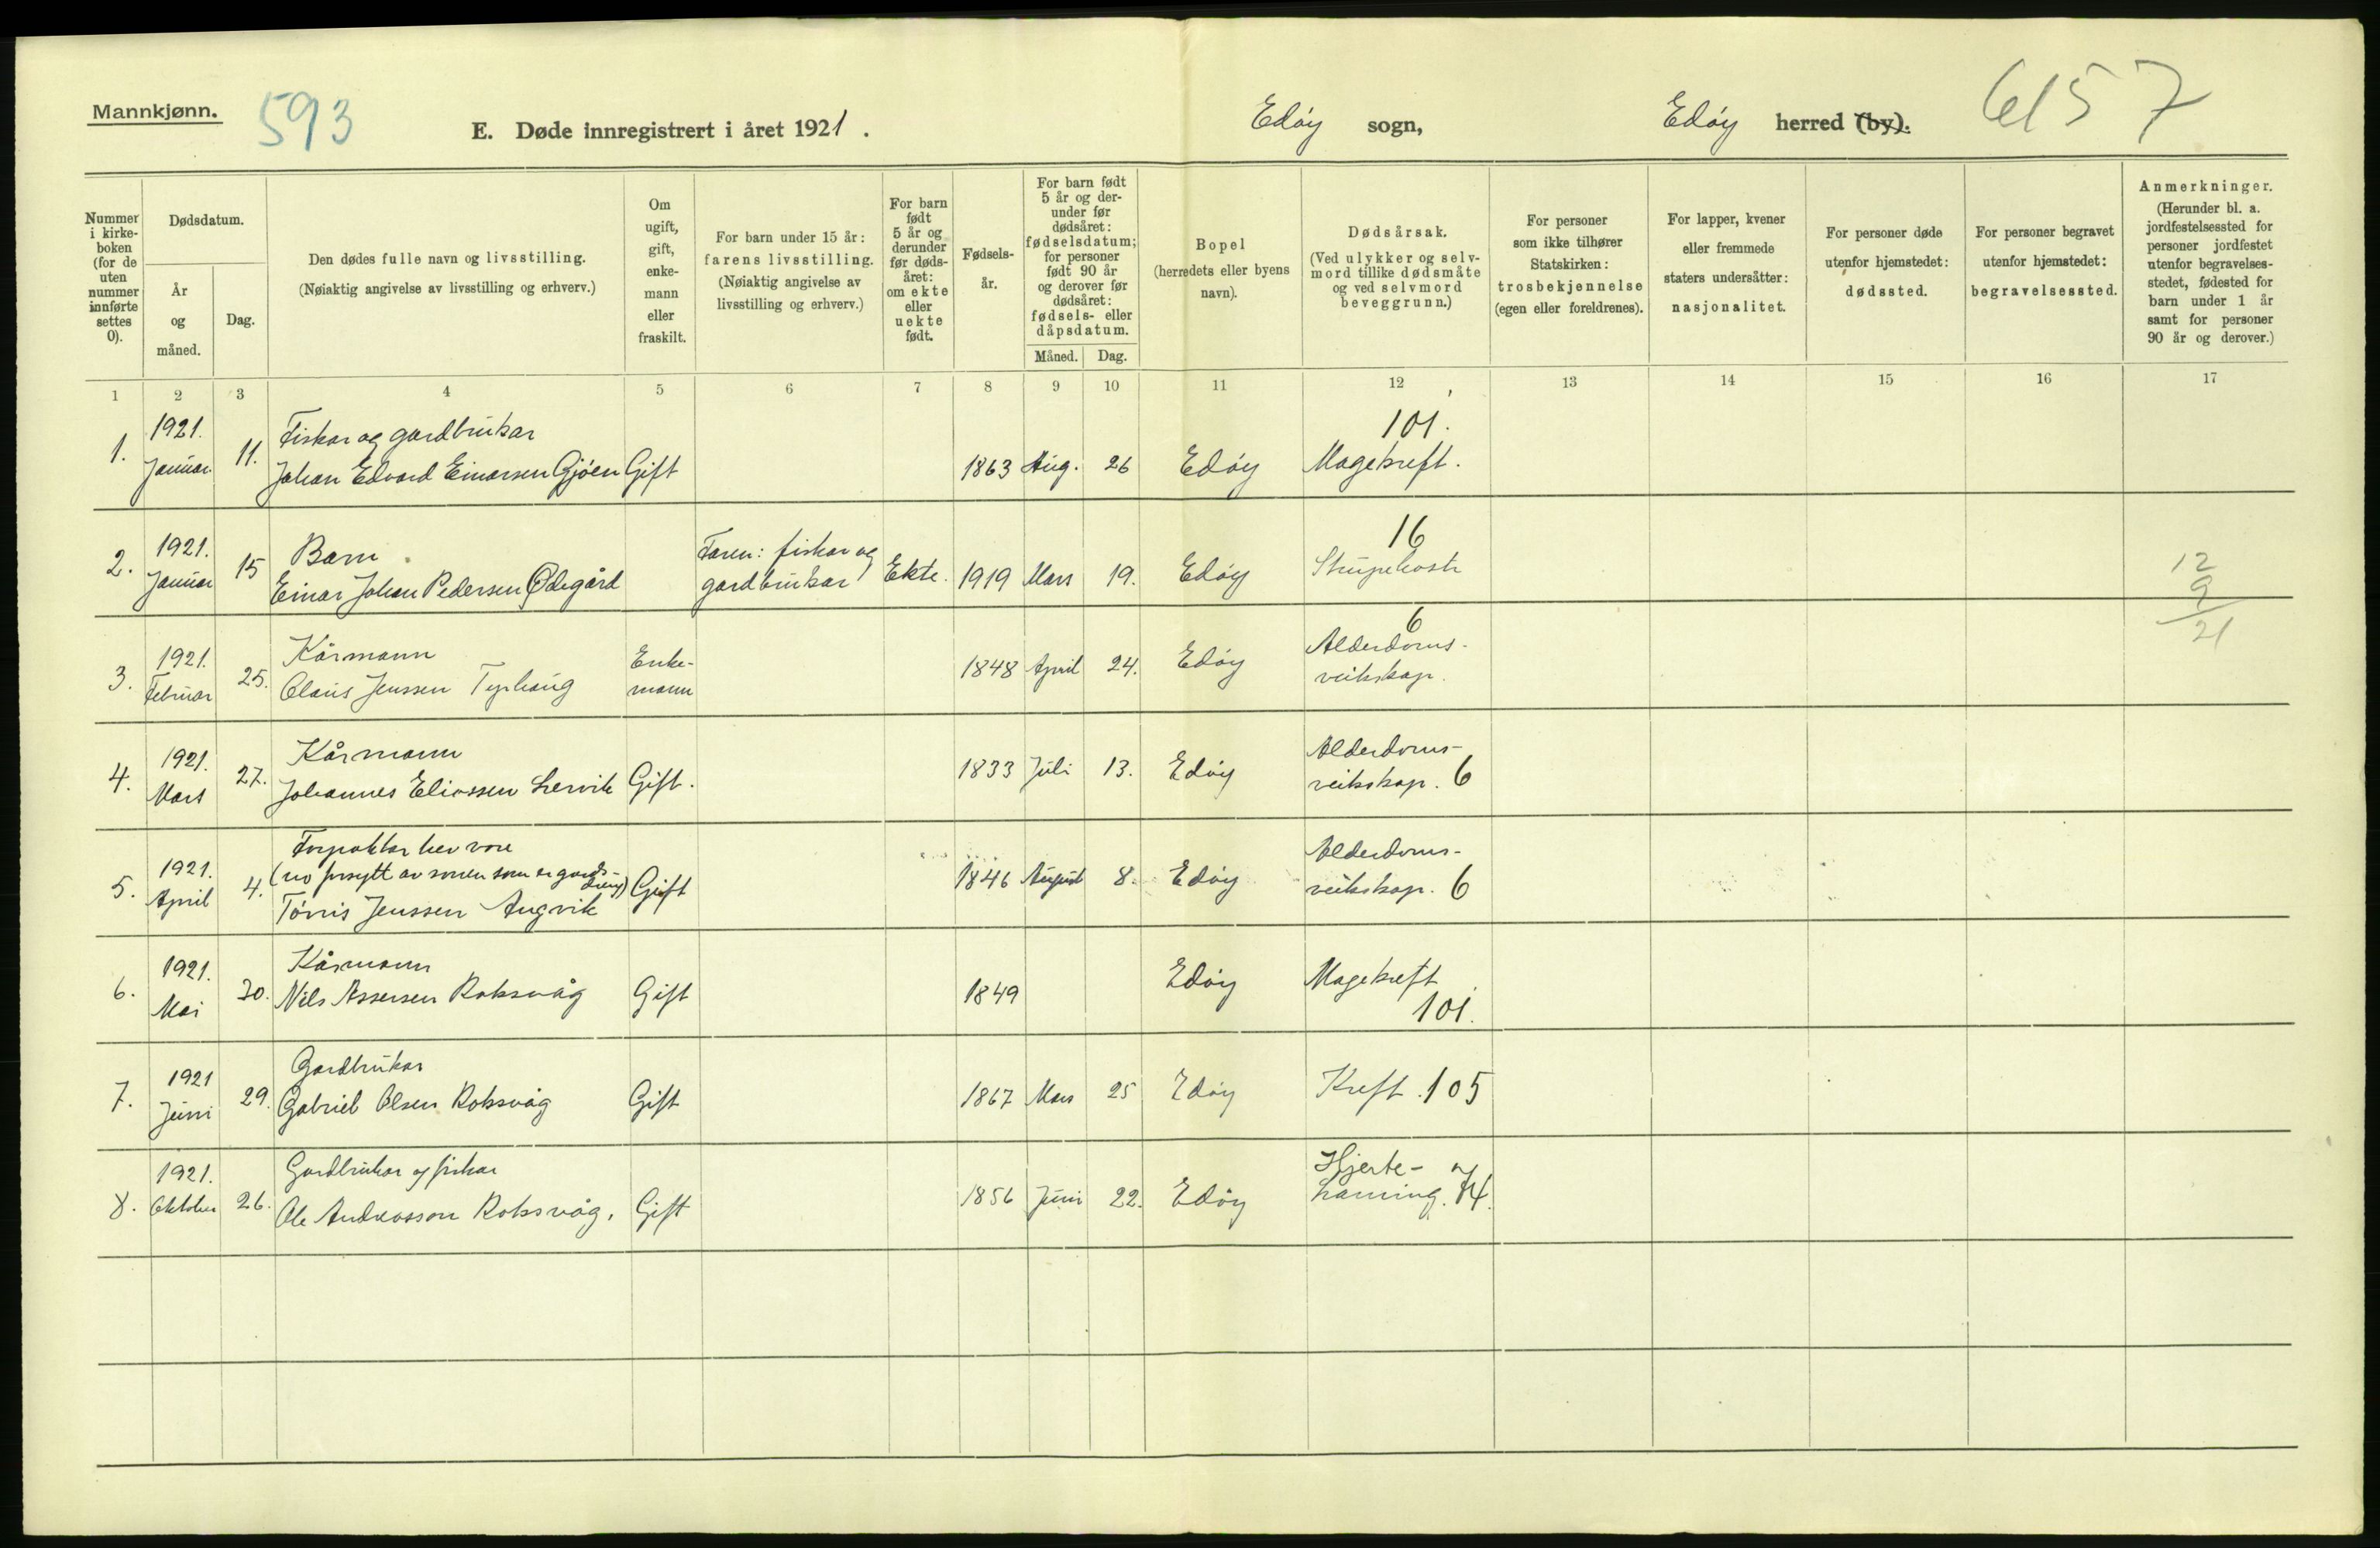 Mannkjønn.
593
E. Døde innregistrert i året 1921.
Edøy sogn,
Edøy herred (by).
6157
Nummer i kirke-boken (for de uten nummer innførte settes 0).
Dødsdatum.
År og måned.
Dag.
Den dødes fulle navn og livsstilling.
(Nøiaktig angivelse av livsstilling og erhverv.)
Om ugift, gift, enke-mann eller fraskilt.
For barn under 15 år: farens livsstilling.
(Nøiaktig angivelse av livsstilling og erhverv.)
For barn født 5 år og derunder før døds-året: om ekte eller uekte født.
Fødsels-år.
For barn født 5 år og der-under før dødsåret: fødselsdatum; for personer født 90 år og derover før dødsåret: fødsels- eller dåpsdatum.
Måned.
Dag.
Bopel
(herredets eller byens navn).
Dødsårsak.
(Ved ulykker og selv-mord tillike dødsmåte og ved selvmord beveggrunn.)
For personer som ikke tilhører Statskirken: trosbekjennelse (egen eller foreldrenes).
For lapper, kvener eller fremmede staters undersåtter: nasjonalitet.
For personer døde utenfor hjemstedet: dødssted.
For personer begravet utenfor hjemstedet: begravelsessted.
Anmerkninger.
(Herunder bl. a. jordfestelsessted for personer jordfestet utenfor begravelses-stedet, fødested for barn under 1 år samt for personer 90 år og derover.)
1 2 3 4 5 6 7 8 9 10 11 12 13 14 15 16 17
1921. Fiskar og gardbrukar 101.
1. Januar 11. Johan Edvard Einarsen Gjøen Gift 1863 Aug. 26 Edøy Magekreft.
1921. Barn Faren: fiskar og 16
2. Januar 15 Einar Johan Pedersen Ødegård gardbrukar Ekte. 1919 Mars 19. Edøy Strupehoste
12
9
21
1921. Kårmann Enke- 6 Alderdoms-
3. Februar 25. Olaus Jenssen Tyrhaug mann 1848 April 24. Edøy veikskap.
1921. Kårmann Alderdoms-
4. Mars 27. Johannes Eliassen Lervik Gift. 1833 Juli 13. Edøy veikskap. 6
Forpaktar hev vore
1921. (no forsytt av sonen som er gards- Alderdoms-
5. April 4. Tørris Jenssen Angvik Gift 1846 August 8. Edøy veikskap. 6
1921. Kårmann
6. Mai 30. Nils Assersen Roksvåg Gift 1849 Edøy Magekreft
101.
1921 Gardbrukar
7. Juni 29. Gabriel Olsen Roksvåg Gift 1867 Mars 25 Edøy Kreft. 105
1921. Gardbrukar og fiskar Hjerte-
8. Oktober 26. Ole Andreassen Roksvåg. Gift 1856 Juni 22. Edøy lamming. 74.